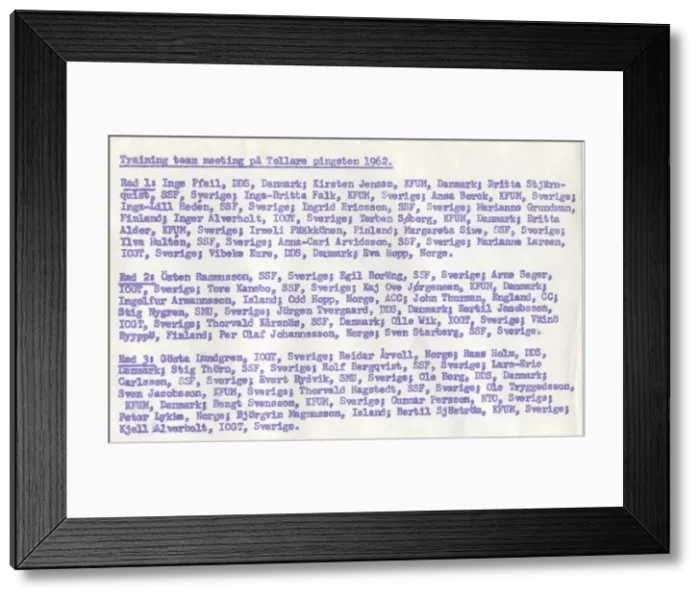 Training team meeting på Tollare pingsten 1962.
Rad 1: Inge Pfeil, DDS, Danmark; Kirsten Jensen, KFUM, Danmark; Britta Stjärn-
quist, SSF, Sverige; Inga-Britta Falk, KFUM, Sverige; Anna Borok, KFUM, Sverige;
Inga-Lill Hedén, SSF, Sverige; Ingrid Ericsson, SSF, Sverige; Marianne Grundman,
Finland; Inger Alverholt, IOGT, Sverige; Torben Sjöborg, KFUM, Danmark; Britta
Alder, KFUM, Sverige; Irmeli Pääkkönen, Finland; Margareta Siwe, SSF, Sverige;
Ylva Hultén, SSF, Sverige; Anna-Cari Arvidsson, SSF, Sverige; Marianne Larsen,
IOGT, Sverige; Vibeke Kure, DDS, Danmark; Eva Hopp, Norge.
Rad 2: Östen Rasmusson, SSF, Sverige; Egil Boräng, SSF, Sverige; Arne Seger,
IOGT, Sverige; Tore Kansbo, SSF, Sverige; Kaj Ove Jørgensen, KFUM, Danmark;
Ingolfur Armannsson, Island; Odd Hopp, Norge, ACC; John Thurman, England, CC;
Stig Nygren, SMU, Sverige; Jörgen Tvergaard, DDS, Danmark; Bertil Jacobsson,
IOGT, Sverige; Thorvald SSF, Danmark; Olle Wik, IOGT, Sverige; Väinö
Ryyppö, Finland; Per Olaf Johannesson, Norge; Sven Starberg, SSF, Sverige.
Rad 3: Gösta Lundgren, IOGT, Sverige; Reidar Årvoll, Norge; Hans Holm, DDS,
Danmark; Stig Thörn, SSF, Sverige; Rolf Bergqvist, SSF, Sverige; Lars-Eric
Carlsson, SSF, Sverige; Evert Rydvik, SMU, Sverige; Ole Borg, DDS, Danmark;
Sven Jacobsson, KFUM, Sverige; Thorvald Hagstedt, SSF, Sverige; Ole Tryggedsson,
KFUM, Danmark; Bengt Svensson, KFUM, Sverige; Gunnar Persson, NTO, Sverige;
Peter Lykke, Norge; Björgvin Magnusson, Island; Bertil Sjöström, KFUM, Sverige;
Kjell Alverholt, IOGT, Sverige.